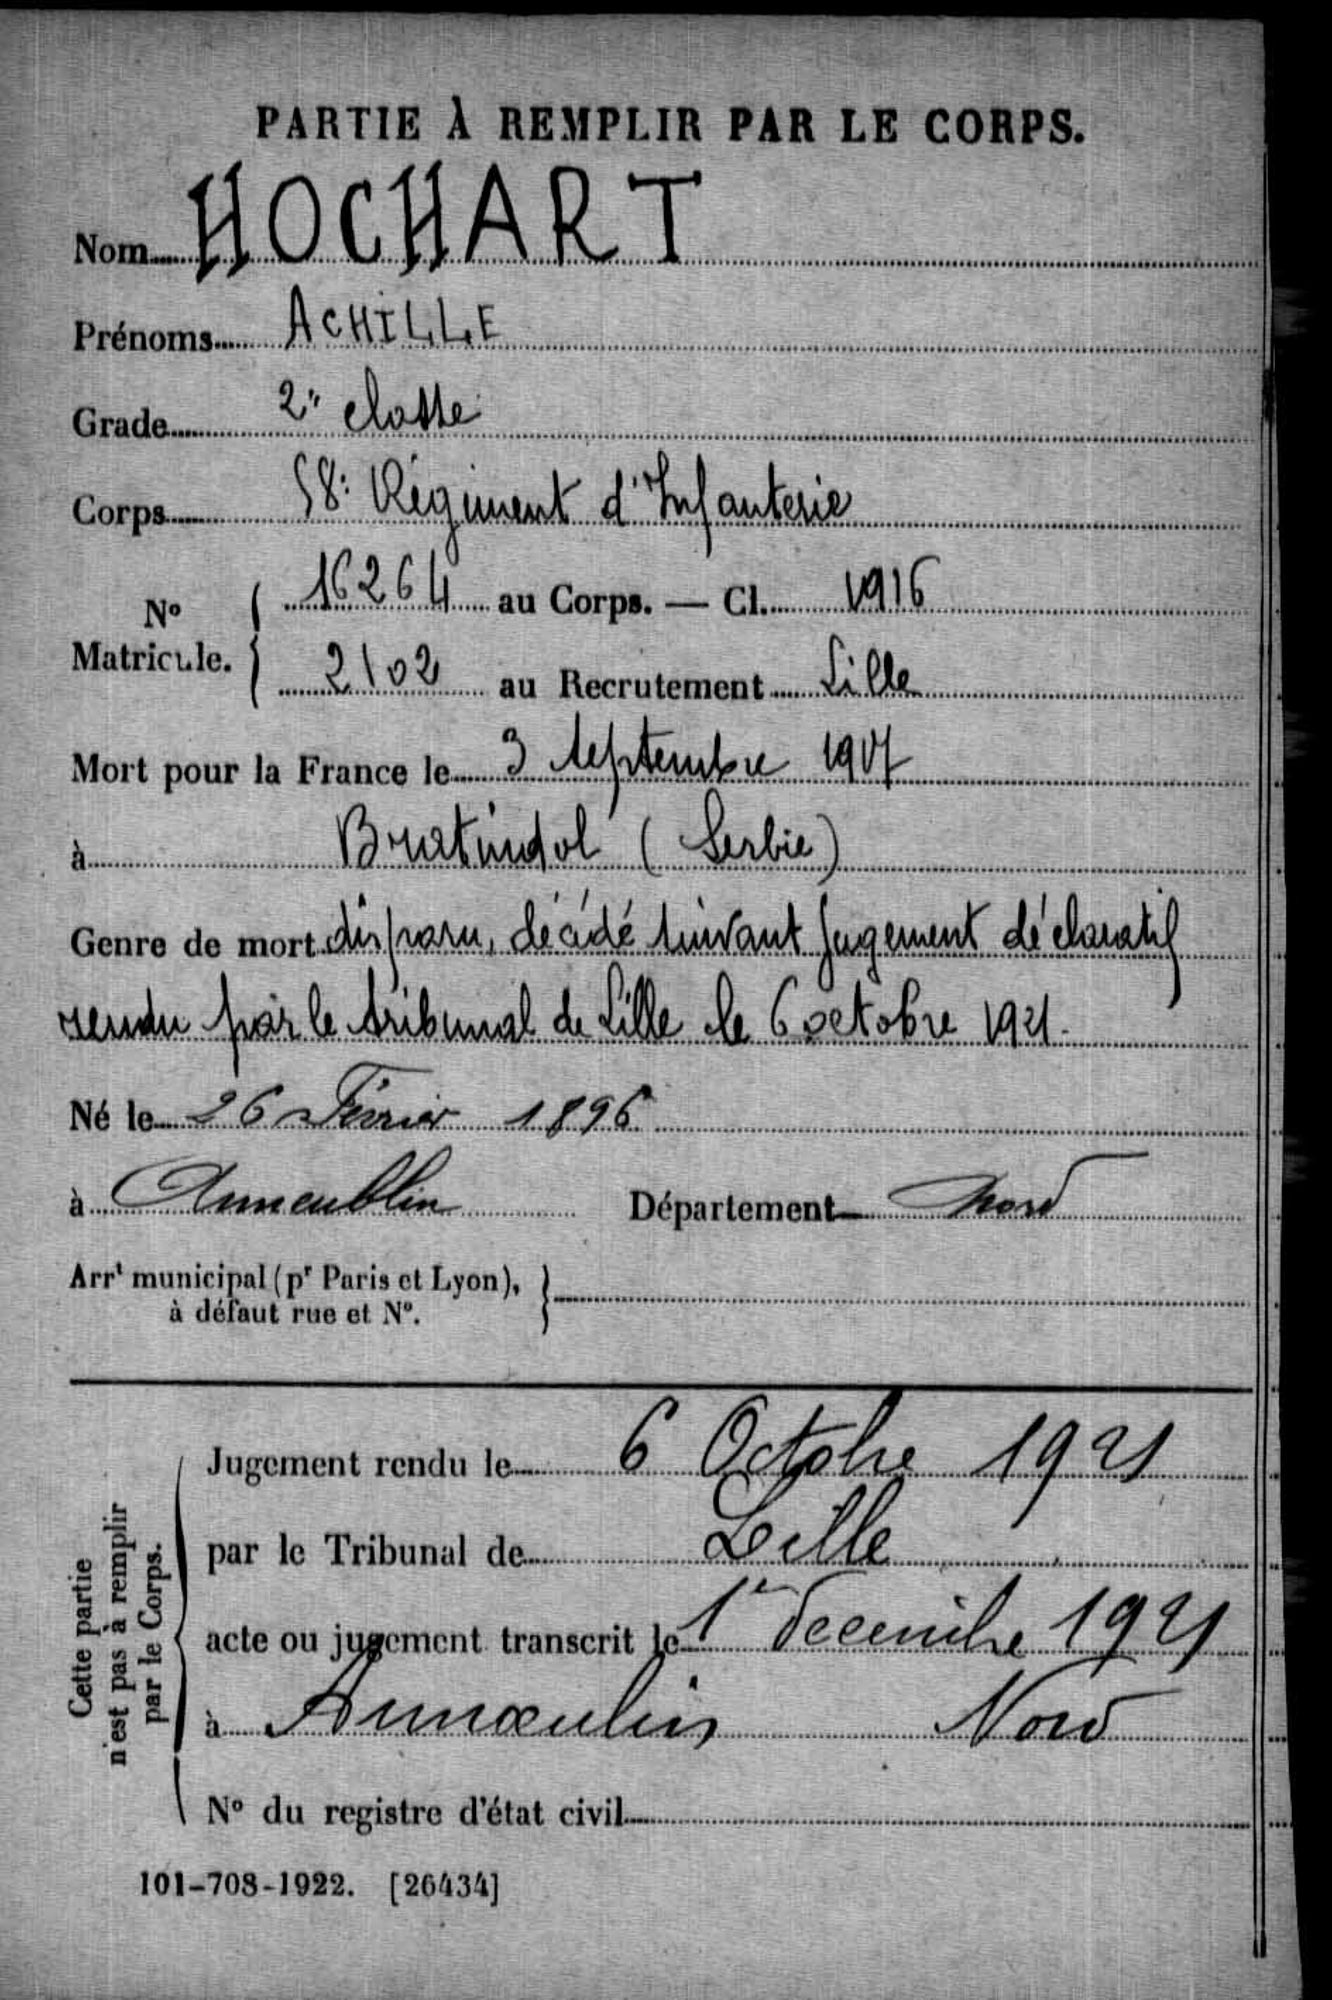 PARTIE À REMPLIR PAR LE CORPS.
Nom HOCHART
Prénoms ACHILLE
Grade 2e classe
Corps 58e Régiment d'Infanterie
N° Matricule. { 16264 au Corps. — Cl. 1916
2102 au Recrutement Lille
Mort pour la France le 3 septembre 1917
à Bratindol (Serbie)
Genre de mort disparu, décédé suivant jugement déclaratif
rendu par le tribunal de Lille le 6 octobre 1921.
Né le 26 Février 1896
à Annœullin Département Nord
Arrt municipal (pr Paris et Lyon), }
à défaut rue et N°.
Cette partie
n'est pas à remplir
par le Corps.
Jugement rendu le 6 Octobre 1921
par le Tribunal de Lille
acte ou jugement transcrit le 1er décembre 1921
à Annœulin Nord
N° du registre d'état civil
101-708-1922. [26434]